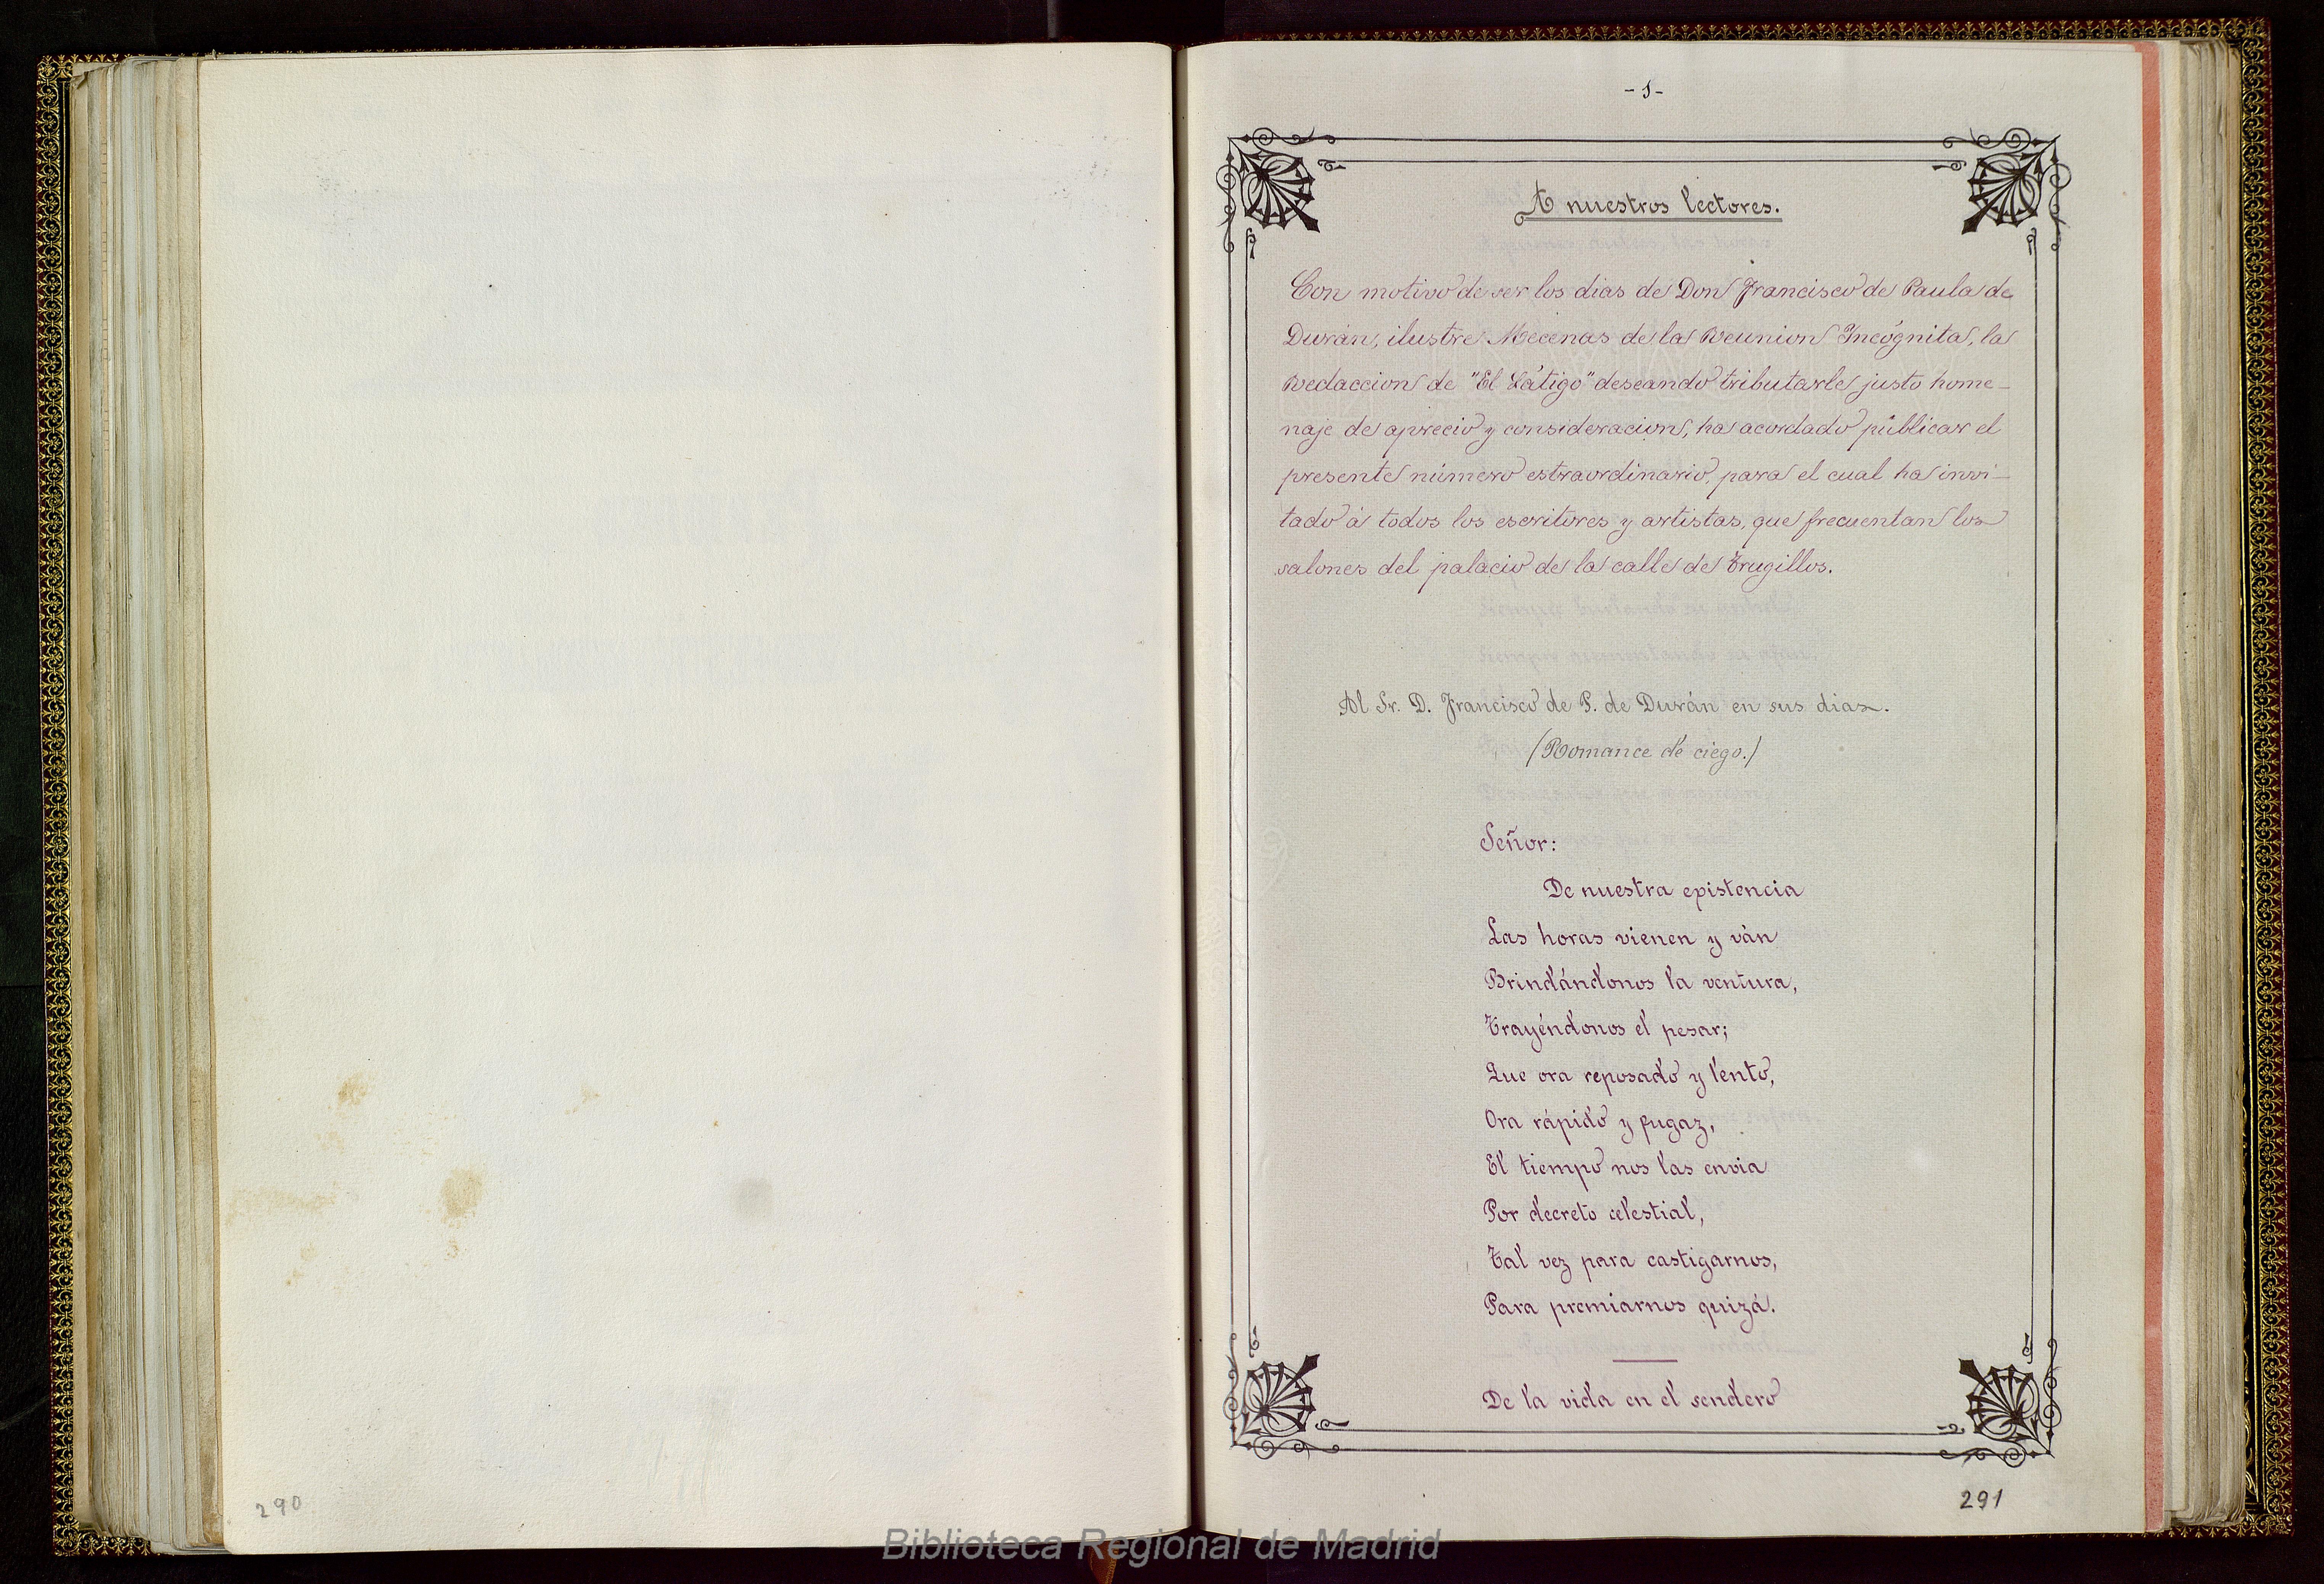 290
- 1 -
A nuestros lectores.
Con motivo de ser los dias de Don Francisco de Paula de
Durán, ilustre Mecenas de la Reunion Incógnita, la
Redaccion de "El Látigo" deseando tributarle justo home-
naje de aprecio y consideracion, ha acordado públicar el
presente número estraordinario, para el cual ha invi-
tado á todos los escritores y artistas, que frecuentan los
salones del palacio de la calle de Trugillos.
Al Sr. D. Francisco de P. de Durán en sus dias.
(Romance de ciego.)
Señor:
De nuestra existencia
Las horas vienen y ván
Brindándonos la ventura,
Trayéndonos el pesar;
Que ora reposado y lento,
Ora rápido y fugaz,
El tiempo nos las envia
Por decreto celestial,
Tal vez para castigarnos,
Para premiarnos quizá.
De la vida en el sendero
291
Biblioteca Regional de Madrid